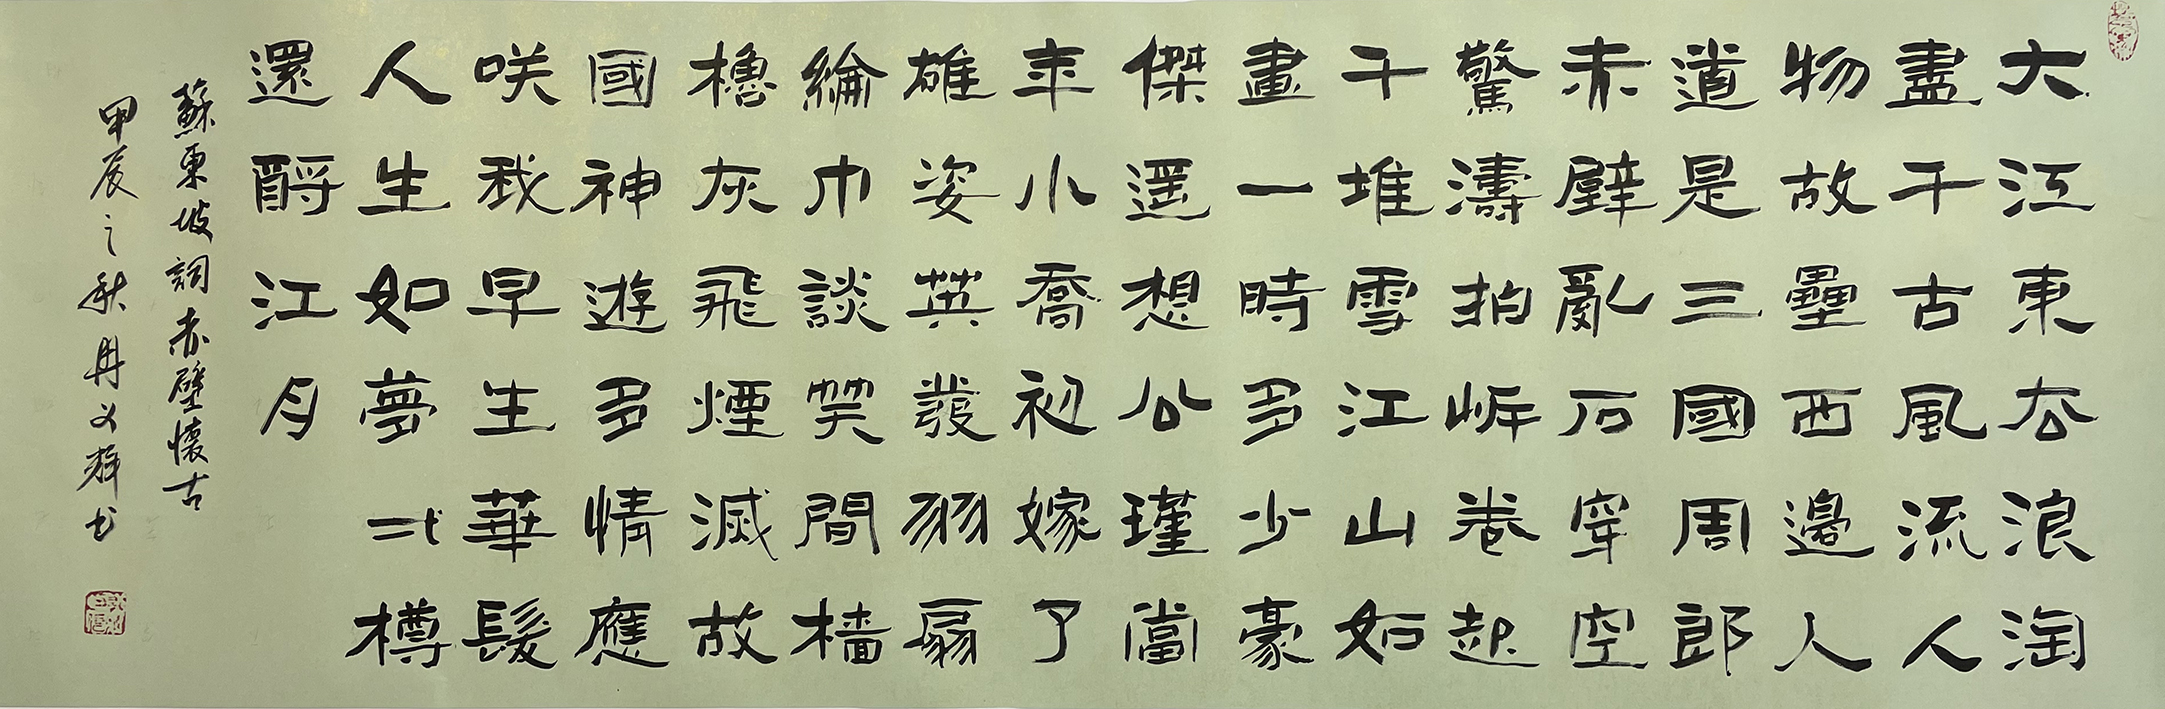 大江東去浪淘
盡千古風流人
物故壘西邊人
道是三國周郎
赤壁亂石穿空
驚濤拍岸卷起
千堆雪江山如
畫一時多少豪
傑遥想公瑾當
年小喬初嫁了
雄姿英發羽扇
綸巾談笑間檣
櫓灰飛煙滅故
國神遊多情應
咲我早生華髮
人生如夢弌樽
還酹江月
蘇東坡詞赤壁懷古
甲辰之秋冉义书